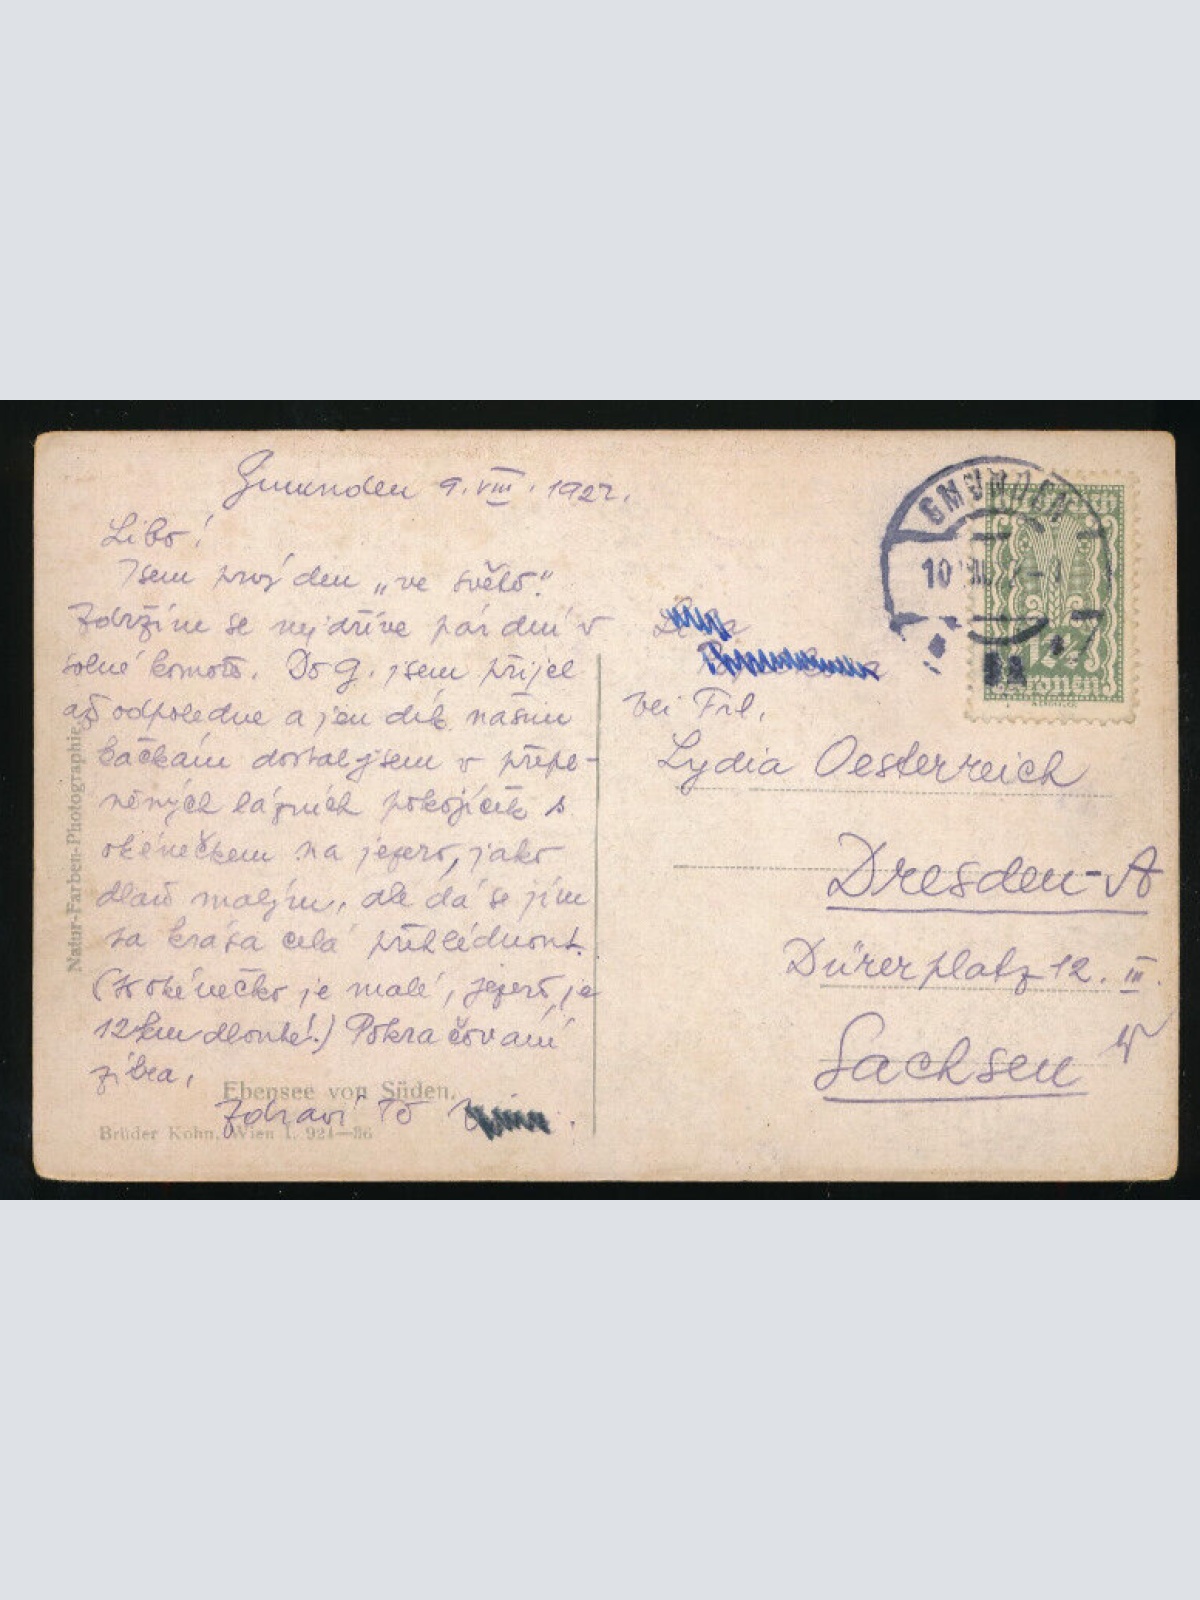 Gmunden 9. VIII. 1922.
Libo!
Jsem prvý den „ve světě".
Zdržím se nejdříve pár dní v
solné komoře. Do G. jsem přijel
až odpoledne a jen dík našim
kačkám dostal jsem v přepl-
něných lázních pokojíček s
okénečkem na jezero, jako
dlaň malým, ale dá se jím
ta krása celá přehlédnout.
(To okénečko je malé, jezero je
12 km dlouhé!) Pokračování
zítra,
Zdraví Tě
bei Frl.
Lydia Oesterreich
Dresden-A
Dürerplatz 12. III.
Sachsen
GMUNDEN
10
12½
Kronen
Natur-Farben-Photographie.
Ebensee von Süden.
Brüder Kohn, Wien I. 924—36